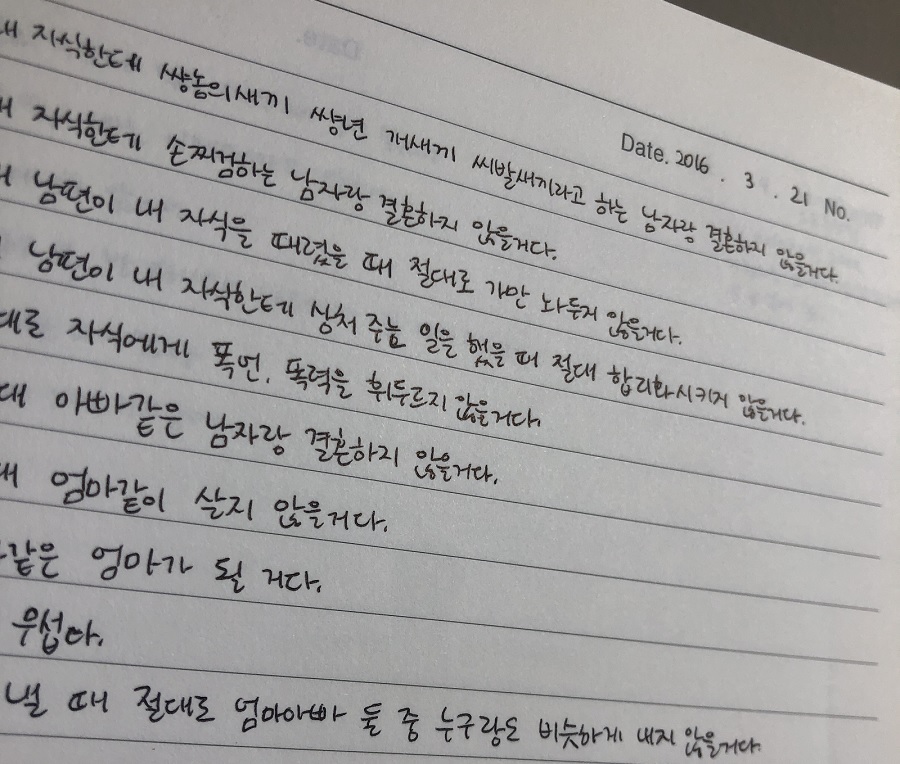 Date. 2016 . 3 . 21 No.
내 자식한테 쌍놈의새끼 썅년 개새끼 씨발새끼라고 하는 남자랑 결혼하지 않을거다.
내 자식한테 손찌검하는 남자랑 결혼하지 않을거다.
남편이 내 자식을 때렸을 때 절대로 가만 놔두지 않을거다.
남편이 내 자식한테 상처 주는 일을 했을 때 절대 합리화시키지 않을거다.
자식에게 폭언, 폭력을 휘두르지 않을거다.
아빠같은 남자랑 결혼하지 않을거다.
엄마같이 살지 않을거다.
같은 엄마가 될 거다.
우섭다.
낼 때 절대로 엄마아빠 둘 중 누구랑도 비슷하게 내지 않을거다.